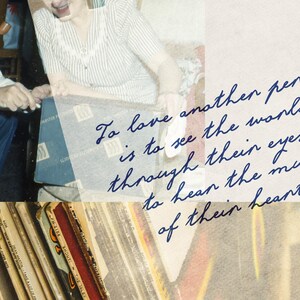 To love another per
is to see the world
through their eyes
to hear the mu
of their heart